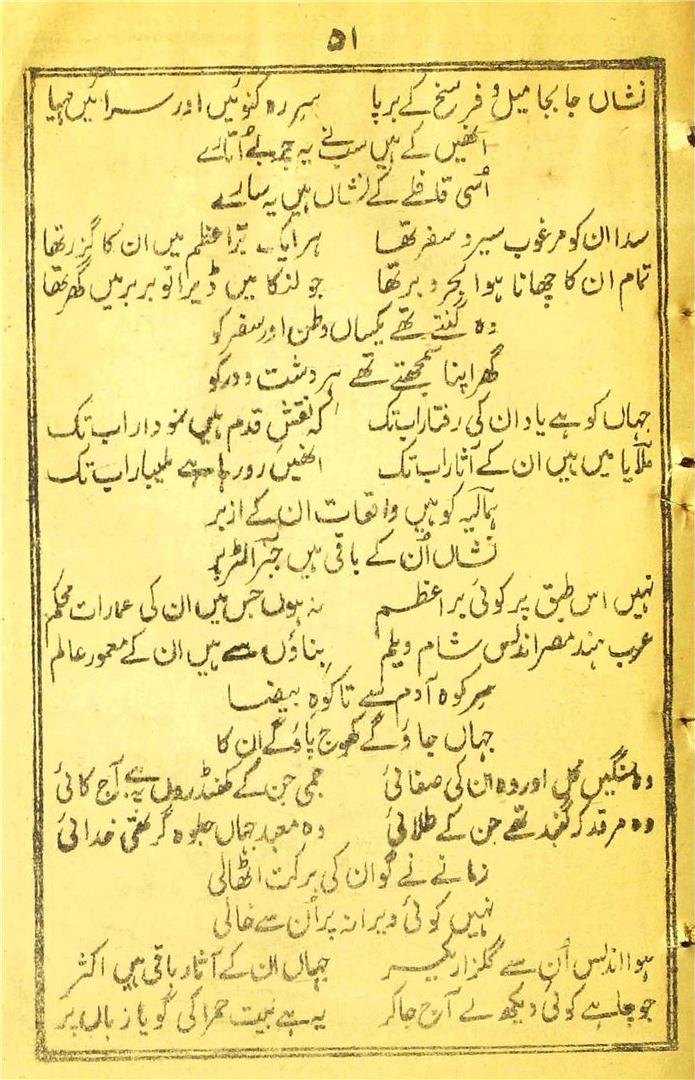 ۵۱
نشاں جا بجا میل و فرسخ کے برپا سرِ رہ کنوئیں اور سرائیں مہیا
انھیں کے ہیں سب نے یہ چربے اُتارے
اُسی قافلے کے نشاں ہیں یہ سارے
سدا ان کو مرغوب سیر و سفر تھا ہر اک برّ اعظم میں ان کا گزر تھا
تمام ان کا چھانا ہوا بحر و بر تھا جو لنکا میں ڈیرا تو بربر میں گھر تھا
وہ گنتے تھے یکساں وطن اور سفر کو
گھر اپنا سمجھتے تھے ہر دشت و در کو
جہاں کو ہے یاد ان کی رفتار اب تک کہ نقشِ قدم ہیں نمودار اب تک
ملایا میں ہیں ان کے آثار اب تک انھیں رو رہا ہے ملیبار اب تک
ہمالیہ کو ہیں واقعات ان کے ازبر
نشاں اُن کے باقی ہیں جبرالٹر پر
نہیں اس طبق پر کوئی برِ اعظم نہ ہوں جس میں ان کی عمارات محکم
عرب ہند مصر اندلس شام ویلم بناؤں سے ہیں ان کے معمور عالم
سرِ کوہ آدم سے تا کوہِ بیضا
جہاں جاؤ گے کھوج پاؤ گے ان کا
وہ سنگیں محل اور وہ ان کی صفائی جمی جن کے کھنڈروں پہ ہے آج کائی
وہ مرقد کہ گنبد تھے جن کے طلائی وہ معبد جہاں جلوہ گر تھی خدائی
زمانے نے گو ان کی برکت اٹھا لی
نہیں کوئی ویرانہ پر اُن سے خالی
ہوا اندلس اُن سے گلزار یکسر جہاں ان کے آثار باقی ہیں اکثر
جو چاہے کوئی دیکھ لے آج جا کر یہ ہے بیت حمرا کی گویا زباں پر